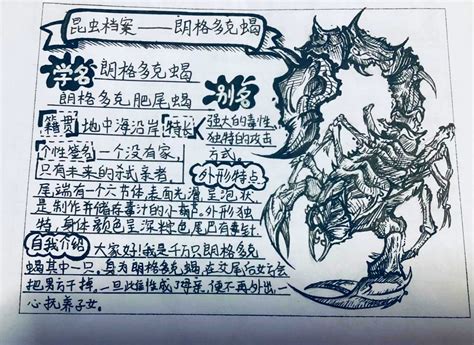 昆虫档案——朗格多克蝎
学名 朗格多克蝎
朗格多克肥尾蝎
别名
籍贯 地中海沿岸
特长 强大的毒性
独特的攻击
方式
个性签名 一个没有家,
只有未来的弑亲者
外形特点
尾端有一个六节体,表面光滑,呈泡状,
是制作并储存毒汁的小葫芦。外形独
特,身体颜色呈深料色,尾后有毒针。
自我介绍 大家好!我是千万只朗格多克
蝎其中一只,身为朗格多克蝎,在交尾后女方会
把男方干掉,一旦雌性成了母亲,便不再外出,一
心抚养子女。